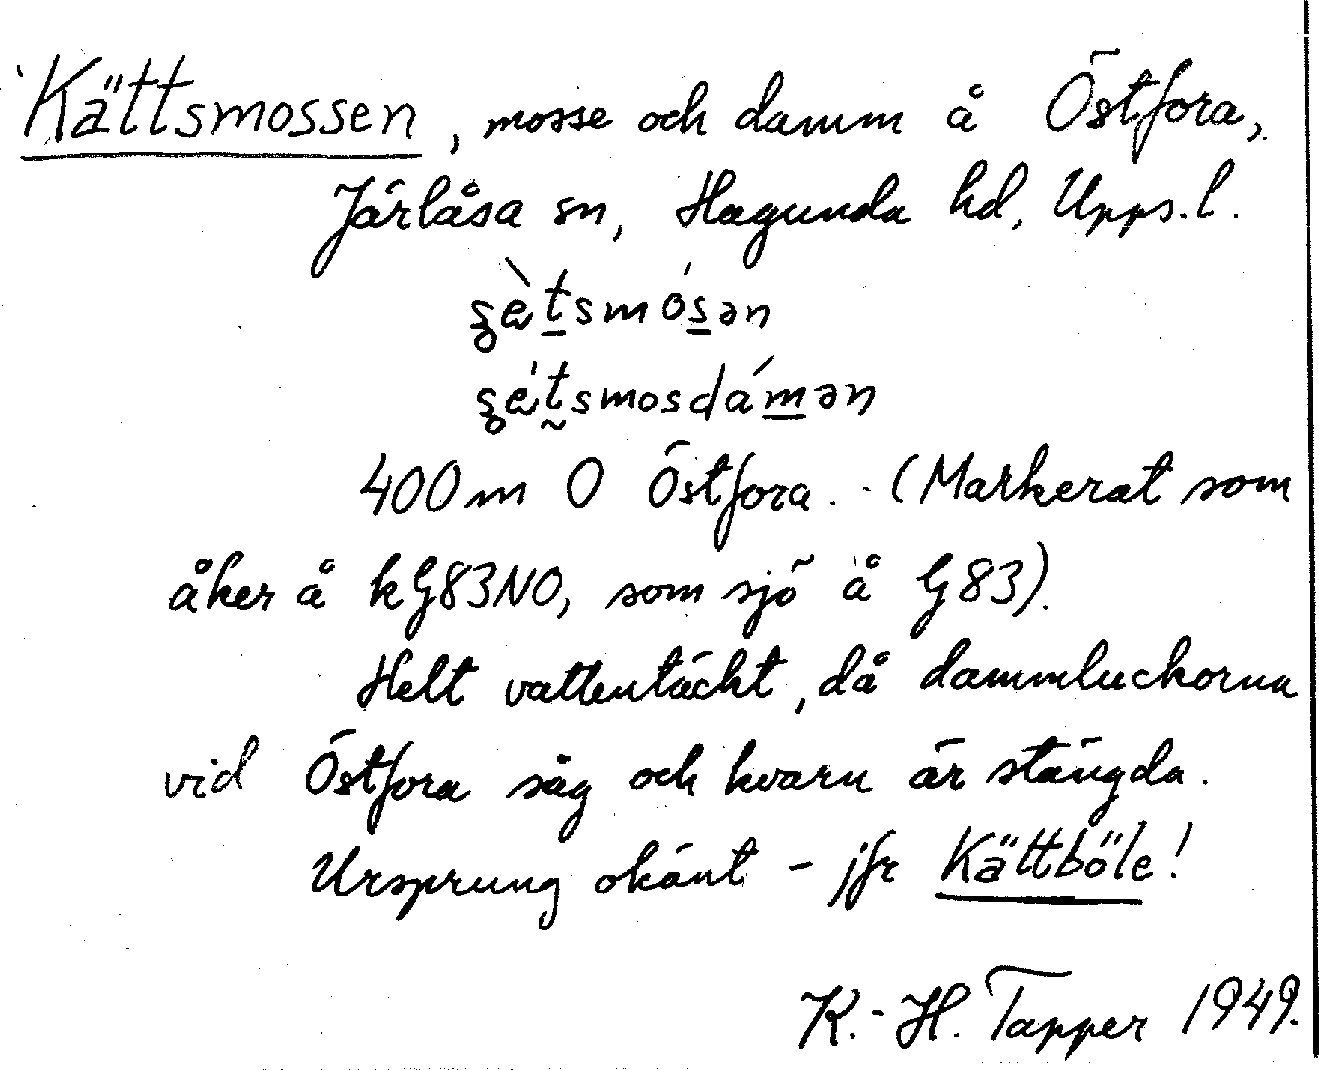 Kättsmossen, mosse och damm å Östfora,
Järlåsa sn, Hagunda hd, Upps.l.
ʂètsmósən
ʂétsmosdámən
400 m O Östfora. - (Markerat som
åker å kG83NO, som sjö å G83).
Helt vattentäckt, då dammluckorna
vid Östfora såg och kvarn är stängda.
Ursprung okänt - jfr Kättböle!
K.-H. Tapper 1949.